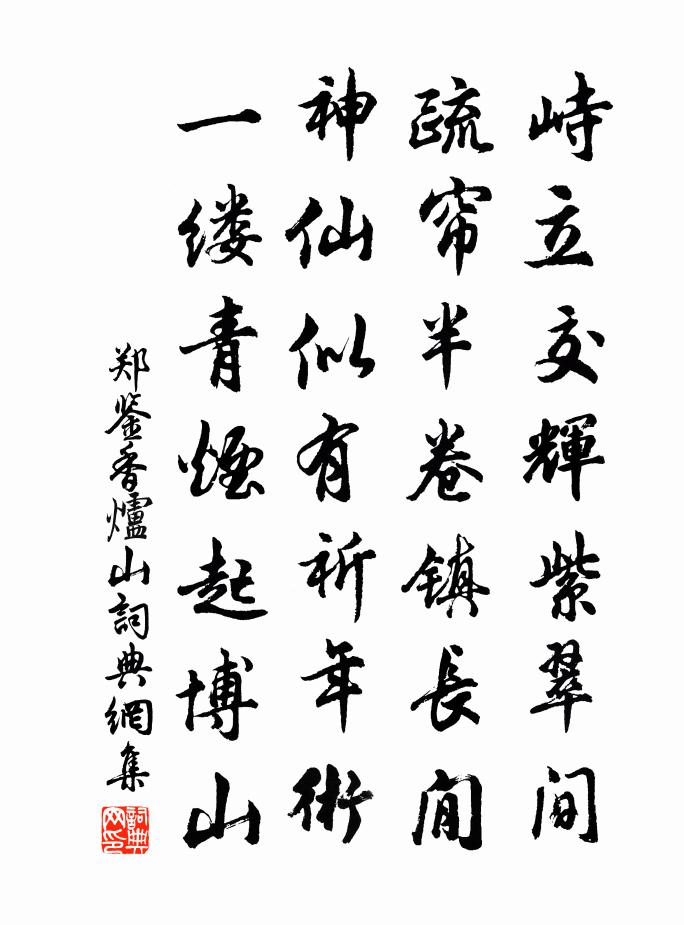 峙立交輝紫翠间
疏帘半卷镇長閒
神仙似有祈年術
一缕青煙起博山
郑鉴香爐山詞典網集
詞典网印